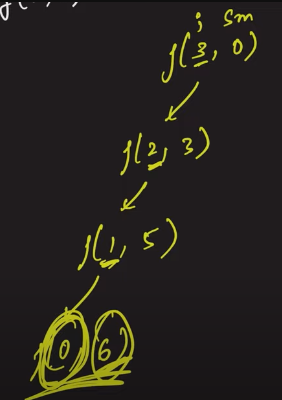 i sm
f(3, 0)
f(2, 3)
f(1, 5)
f(0 6)